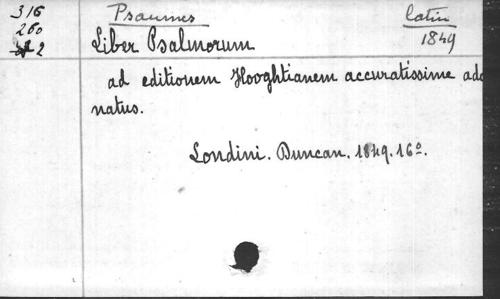 316
260
2
Psaumes
latin
1849
Liber Psalmorum
ad editionem Hooghtianem accuratissime ado
natus.
Londini. Duncan. 1849. 16º.